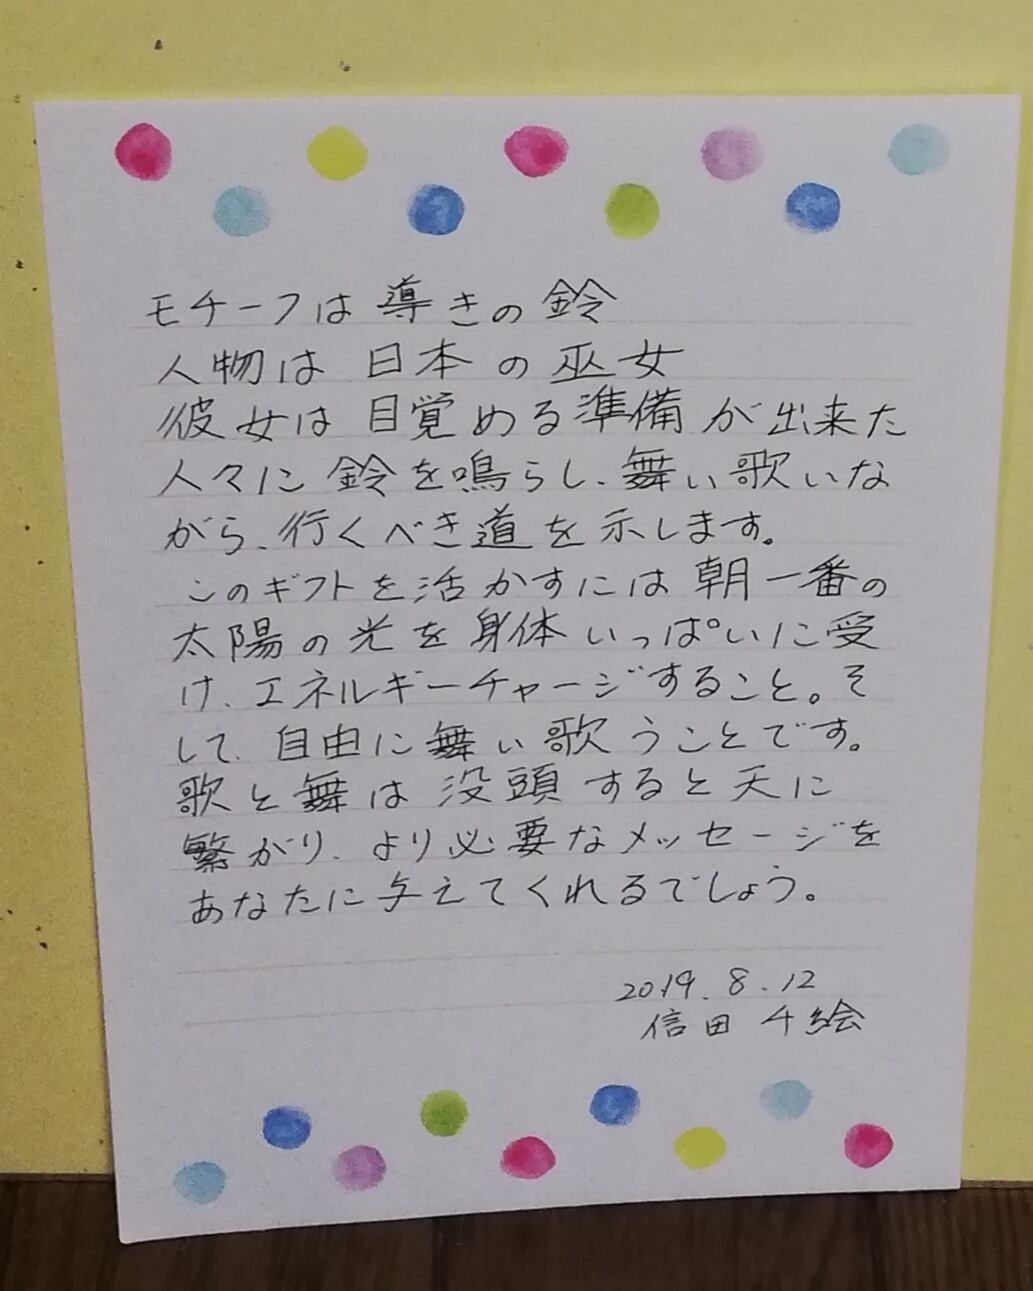 モチーフは導きの鈴
人物は日本の巫女
彼女は目覚める準備が出来た
人々に鈴を鳴らし、舞い歌いな
がら、行くべき道を示します。
このギフトを活かすには朝一番の
太陽の光を身体いっぱいに受
け、エネルギーチャージすること。そ
して、自由に舞い歌うことです。
歌と舞は没頭すると天に
繋がり、より必要なメッセージを
あなたに与えてくれるでしょう。
2019.8.12
信田 千絵